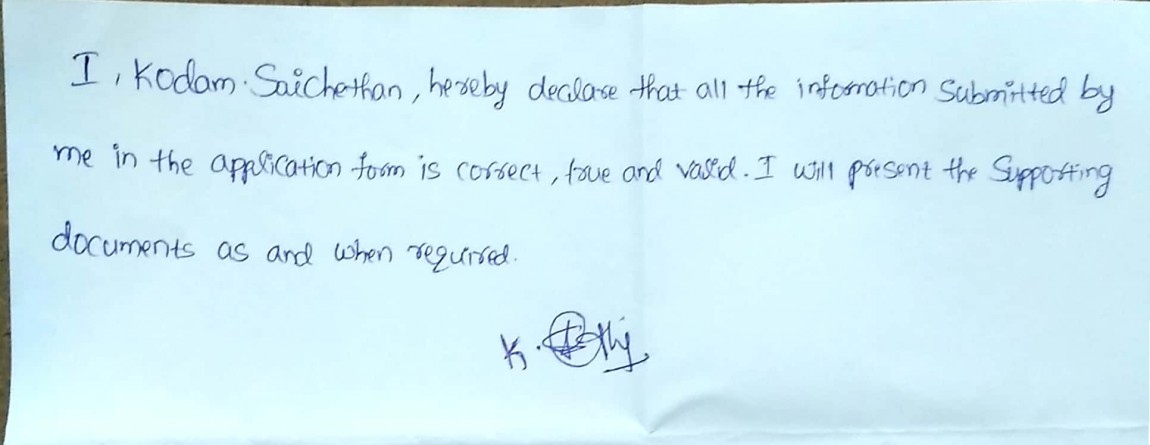 I, Kodam. Saichethan, hereby declare that all the information submitted by
me in the application form is correct, true and valid. I will present the Supporting
documents as and when required.
K.